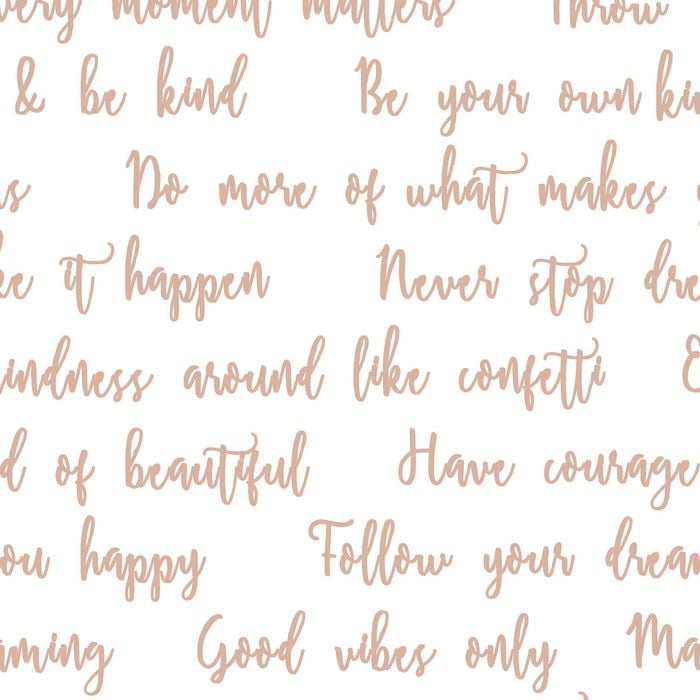 very moment matters Throw
& be kind Be your own kin
s Do more of what makes
ke it happen Never stop drea
indness around like confetti E
d of beautiful Have courage
ou happy Follow your dream
aming Good vibes only Ma